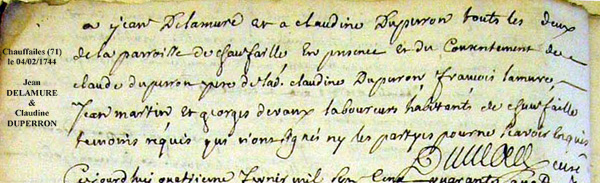 Chauffailes (71)
le 04/02/1744
Jean
DELAMURE
&
Claudine
DUPERRON
a jean Delamure et a claudine Duperron touts les deux
de la parroisse de chauffaille en presence et du Consentement de
claude duperron pere de lad. claudine Duperron, francois lamure,
Jean martin et georges devaux laboureurs habitants de chauffaille
temoins requis qui n'ont signé ny les partyes pour ne scavoir enquis
curé
quatrieme fevrier mil sept cent quarante